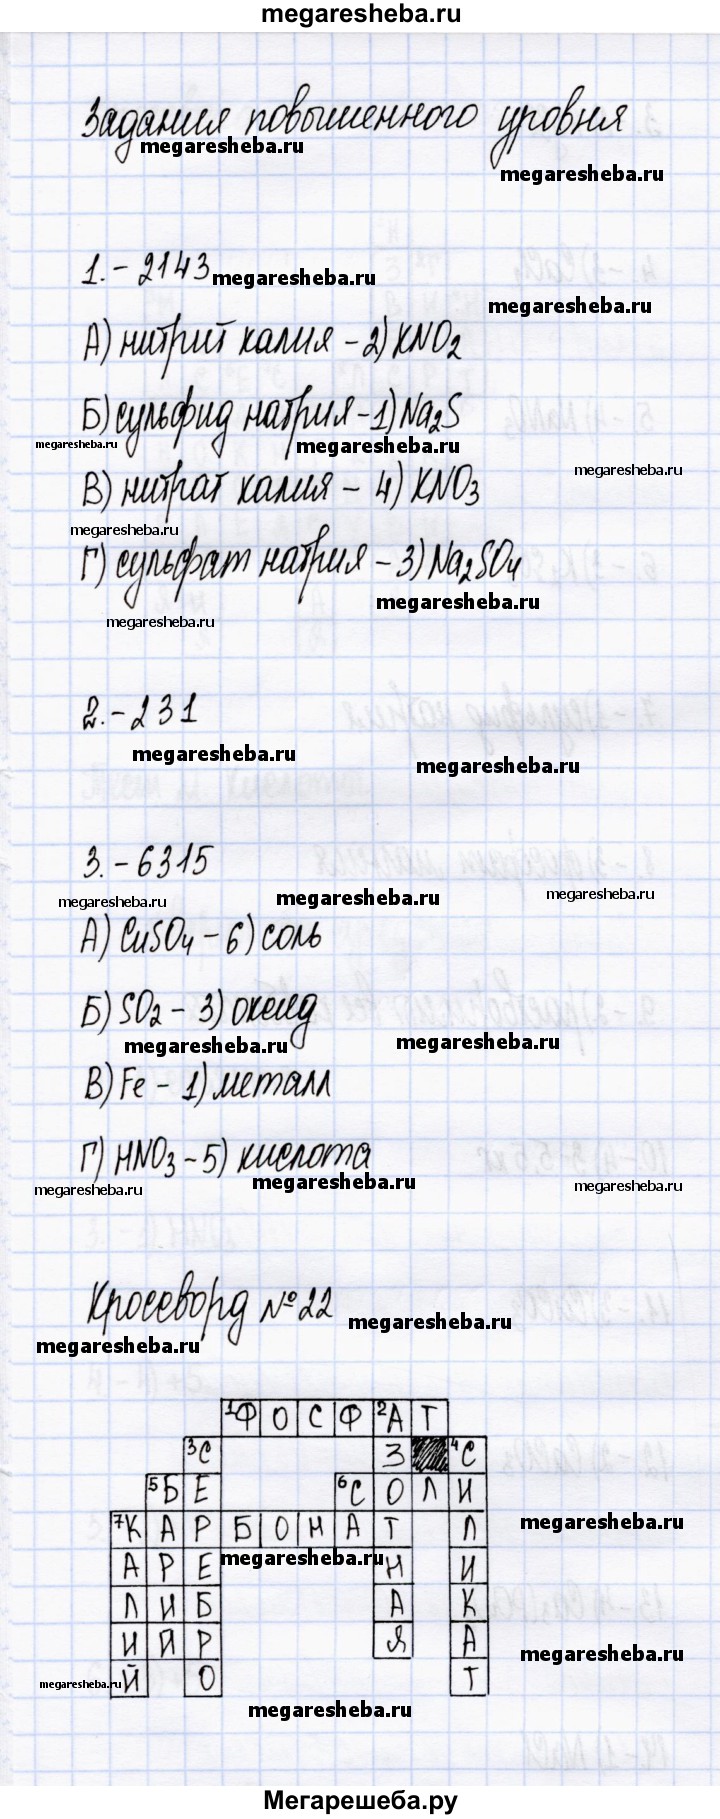 megaresheba.ru
Задания повышенного уровня
megaresheba.ru
megaresheba.ru
1.-2143
megaresheba.ru
megaresheba.ru
А) нитрит калия - 2) KNO2
Б) сульфид натрия - 1) Na2S
megaresheba.ru
megaresheba.ru
megaresheba.ru
В) нитрат калия - 4) KNO3
megaresheba.ru
Г) сульфат натрия - 3) Na2SO4
megaresheba.ru
megaresheba.ru
2.-231
megaresheba.ru
megaresheba.ru
3.-6315
megaresheba.ru
megaresheba.ru
megaresheba.ru
А) CuSO4 - 6) соль
Б) SO2 - 3) оксид
megaresheba.ru
megaresheba.ru
В) Fe - 1) металл
Г) HNO3 - 5) кислота
megaresheba.ru
megaresheba.ru
megaresheba.ru
Кроссворд №22
megaresheba.ru
megaresheba.ru
1Ф О С Ф 2А Т
3С З 4С
5Б Е 6С О Л И
7К А Р Б О Н А Т Л
megaresheba.ru
А Р Е Н И
megaresheba.ru
Л И Б А К
И Й Р Я А
megaresheba.ru
Й О Т
megaresheba.ru
megaresheba.ru
Мегарешеба.ру